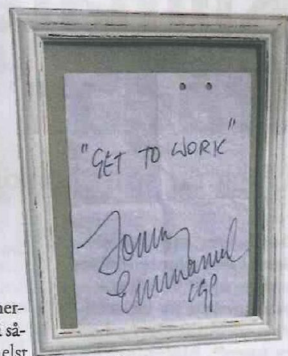 "GET TO WORK"
Tommy
Emmanuel
cgp
ner-
så-
elst